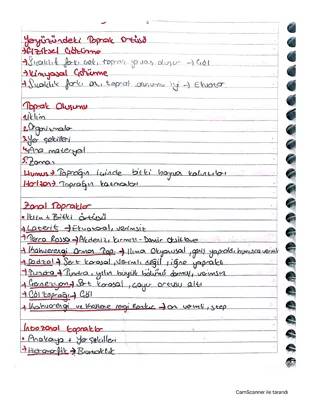 Yeryüzündeki Toprak Örtüsü
→ Fiziksel Çözünme
→ Sıcaklık farkı çok, toprak yavaş oluşur → Çöl
→ Kimyasal Çözünme
→ Sıcaklık farkı az, toprak oluşumu iyi → Ekvator
Toprak Oluşumu
1. İklim
2. Organizmalar
3. Yer şekilleri
4. Ana materyal
5. Zaman
Humus → Toprağın içinde bitki hayvan kalıntıları
Horizon → Toprağın katmanları
Zonal Topraklar
• İklim + Bitki örtüsü
→ Laterit → Ekvatoral, verimsiz
→ Terra Rossa → Akdeniz, kırmızı - Demir Oksit
→ Kahverengi Orman Top. → Ilıman Okyanusal, geniş yapraklı, humusca verimli
→ Podzol → Sert karasal, verimli değil, iğne yapraklı
→ Tundra → Tundra, yılın büyük bölümü donmuş, verimsiz
→ Çernezyom → Sert karasal, çayır örtüsü altı
→ Çöl toprağı → Çöl
→ Kahverengi ve Kestane rengi → verimli, step
İntrazonal topraklar
• Anakaya + Yer şekilleri
→ Hidromorfik → Bataklık
CamScanner ile tarandı